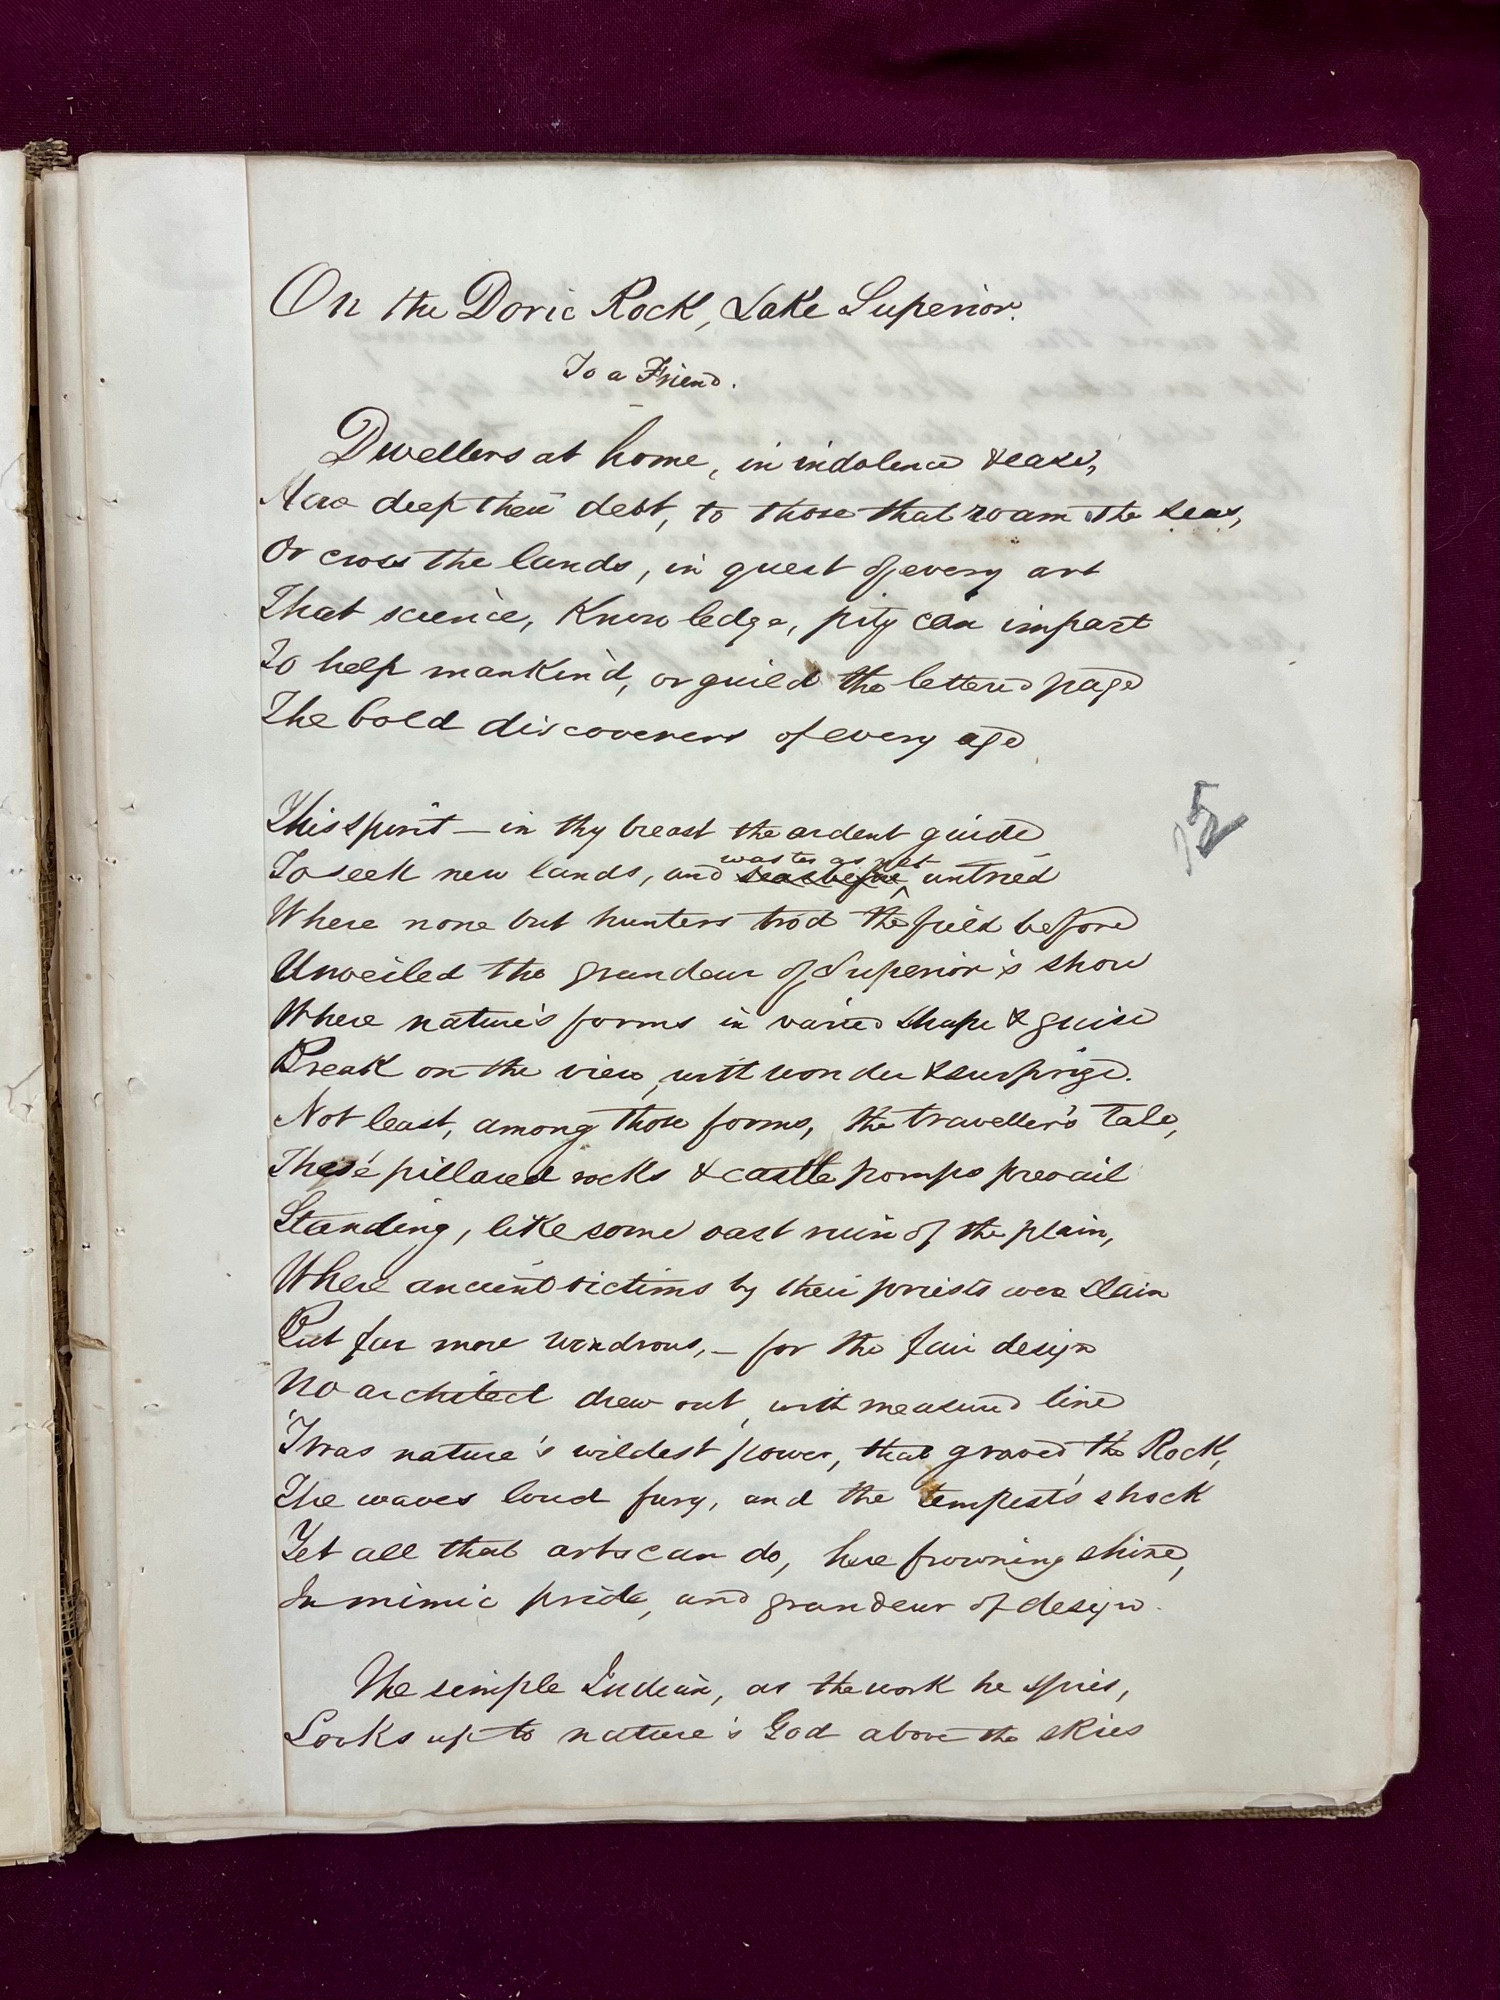 On the Doric Rock, Lake Superior.
To a Friend.
Dwellers at home, in indolence & ease,
How deep their debt, to those that roam the seas,
Or cross the lands, in quest of every art
That science, knowledge, pity can impart
To help mankind, or guild the lettered page
The bold discoverers of every age
This spirit — in thy breast the ardent guide
wastes as yet
To seek new lands, and untried
Where none but hunters trod the field before
Unveiled the grandeur of Superior's shore
Where nature's forms in varied shape & guise
Break on the view, with wonder & surprize.
Not least, among those forms, the traveller's tale,
These pillared rocks & castle pomps prevail
Standing, like some vast ruin of the plain,
Where ancient victims by their priests were slain
But far more wondrous, — for the fair design
No architect drew out, with measured line
'Twas nature's wildest power, that graved the Rock,
The waves loud fury, and the tempest's shock
Yet all that arts can do, here frowning shine,
In mimic pride, and grandeur of design.
The simple Indian, as the work he spies,
Looks up to nature's God above the skies